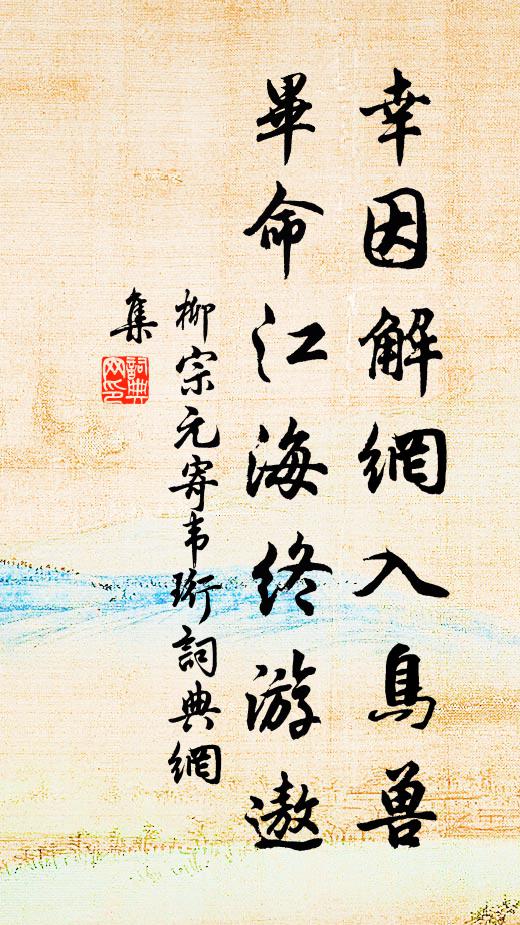 幸因解網入鳥獸
畢命江海終游遨
柳宗元寄韦珩詞典網
集
詞典
网印